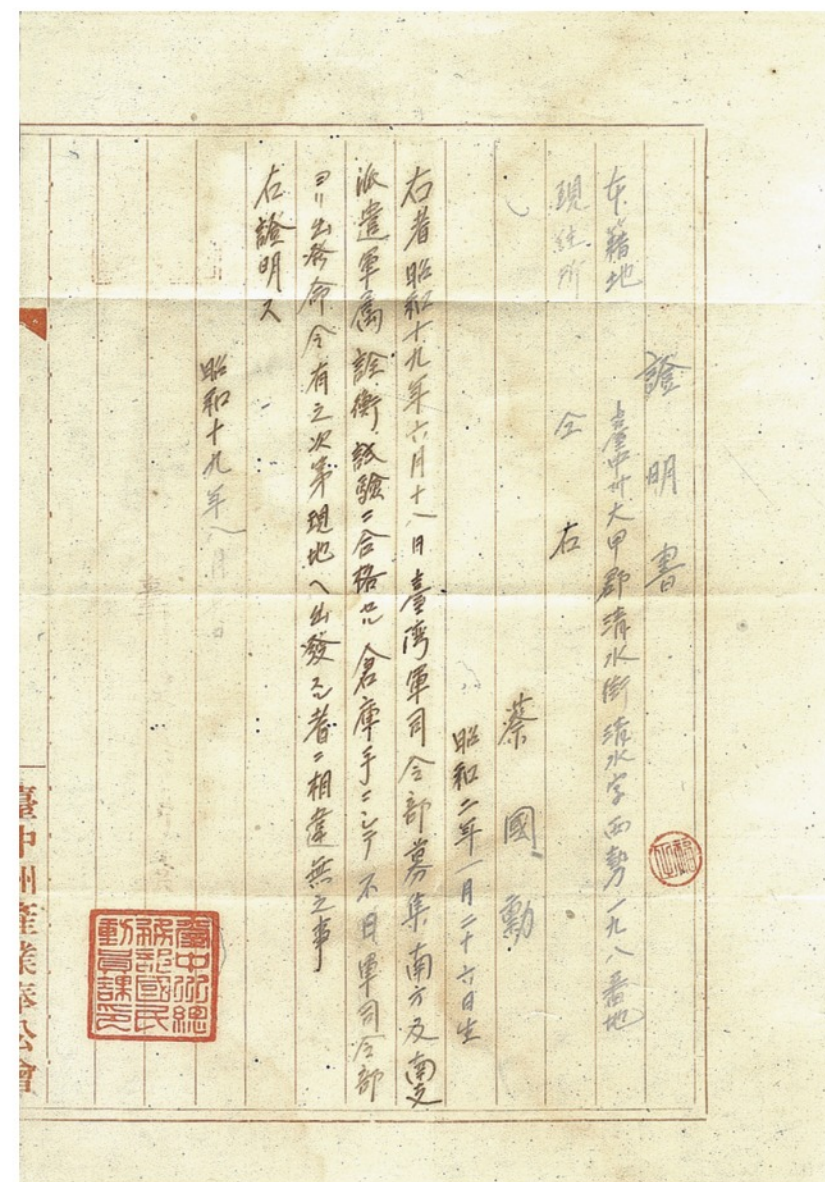 證明書
本籍地 臺中州大甲郡清水街清水字西勢一九八番地
現住所 仝右
蔡國勳
昭和二年一月二十六日生
右者昭和十九年六月十八日臺湾軍司令部募集南方及南支
派遣軍属詮衡試驗ニ合格セル倉庫手ニシテ不日軍司令部
ヨリ出発命令有之次第現地ヘ出發スル者ニ相違無之事
右證明ス
昭和十九年八月 日
臺中州總務部國民動員課印
臺中州産業奉公會